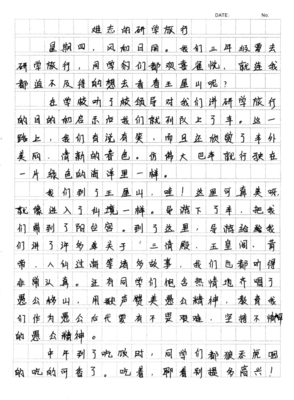 DATE: No.
难忘的研学旅行
星期四，风和日丽。我们三年级要去
研学旅行，同学们们都欢喜雀悦，就连我
都迫不及待的想去看看王屋山呢？
在学校听了校领导对我们讲研学旅行
的目的和启示后我们就列队上了车。这一
路上，我们有说有笑，而且还欣赏了车外
美风，清新的景色。仿佛大巴车就行驶在
一片绿色的海洋里一样。
我们到了王屋山，哇！这里可真美呢
就像进入了仙境一样。导游下了车，把我
们带到了阳台宫。到了这里，导游给我
们讲了许多关于「三清殿、王皇阁、黄
帝、人纠过海等诸多故事，我们也都听得
非常认真。还有同学们饱含热情地齐唱了
愚公移山，用歌声赞美愚公精神，教育我
们作为愚公后代要有不畏艰难，坚持不懈
的愚公精神。
中午到了吃饭时，同学们都狼吞虎咽
的吃的可香了。吃着，聊着别提多高兴！